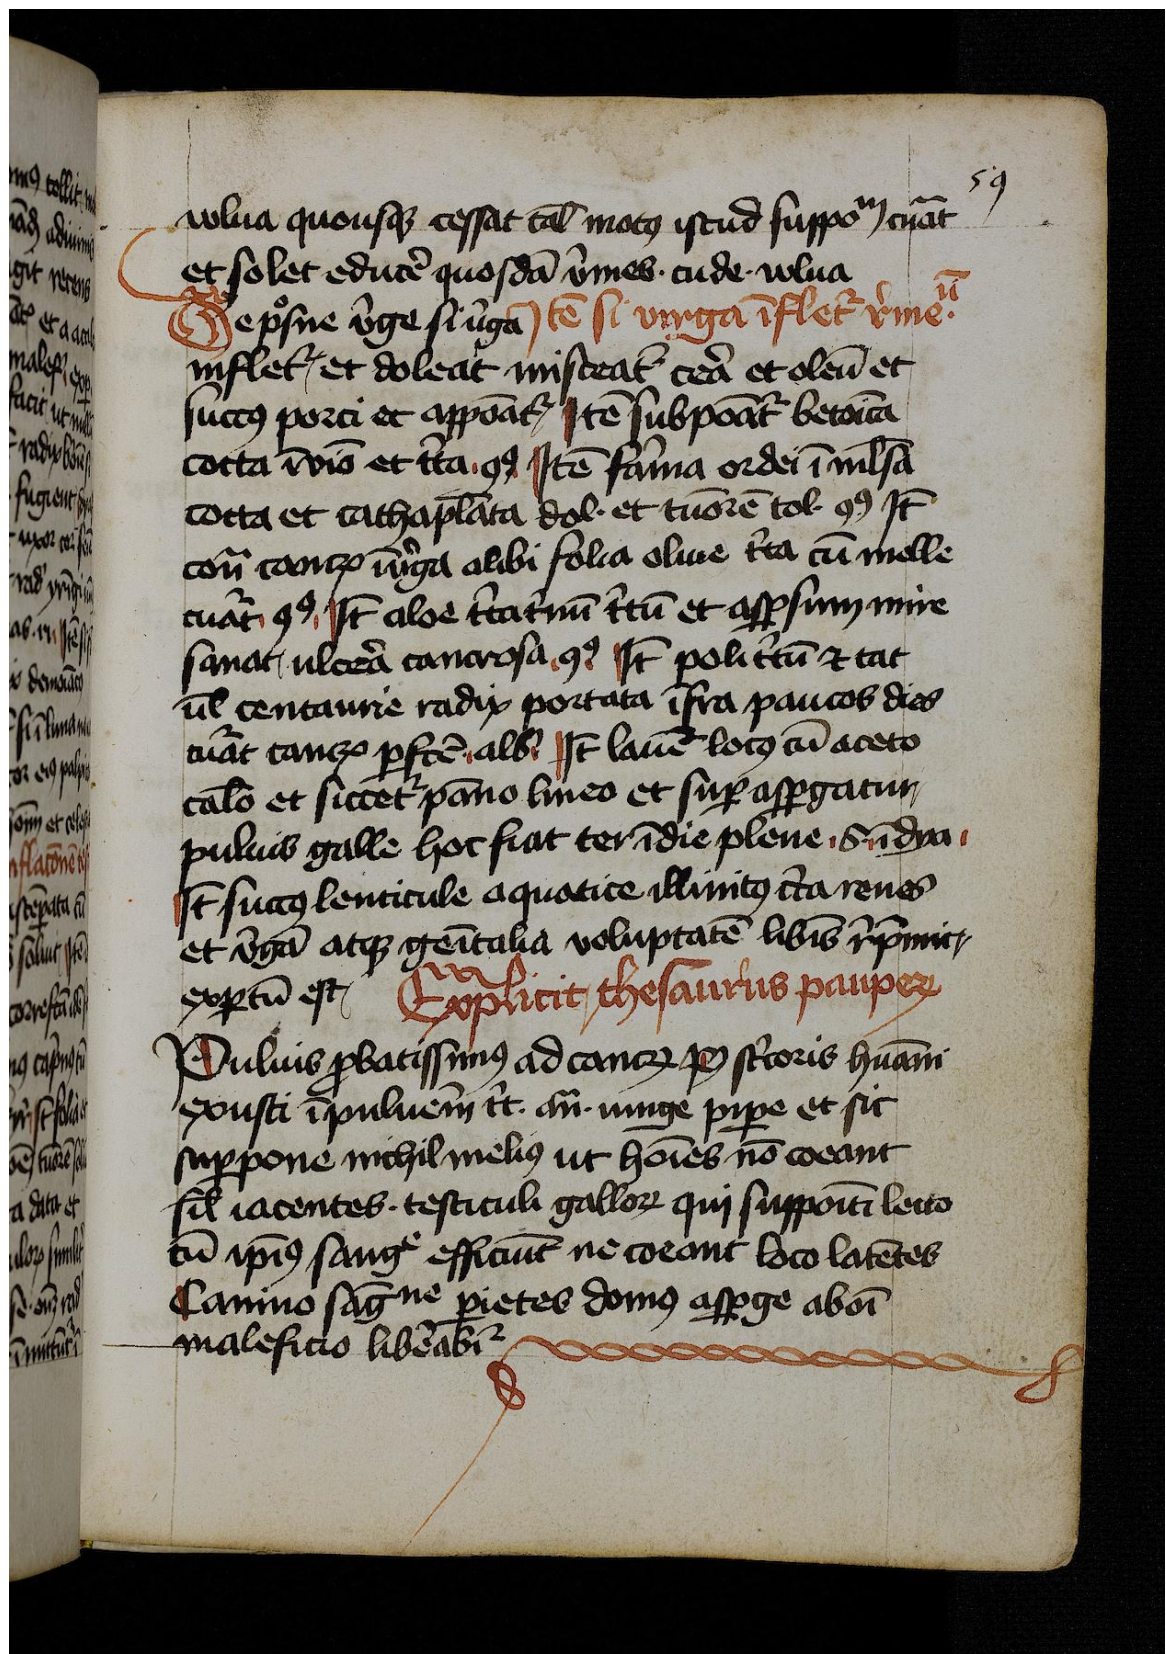 59
wlua quousqꝫ cessat tal̄ motꝰ istud suppōm cur̄at
et solet educē quosdā v̄mes · cude · wlua
Gep̊sne v̄ge si v̄ga Itē si virga īfletr̄ r̄me᷑
infletr̄ et doleat misceatr̄ cerā et oleū et
succꝰ porci et appōatr̄ Itē subpōatr̄ betōica
cocta ī vīo et tr̄ta · ꝯꝰ Itē far̄ina ordei ī ml̄sa
cocta et cathapl̄ata dol · et tūorē tol · ꝯꝰ It̄
con̄ cancꝝ ī v̄ga alibi folia oliue tr̄ta cū melle
cur̄āt · ꝯꝰ · It̄ aloe tr̄catr̄inū tr̄tū et asꝑsum mire
sanat ulcerā cancrosa · ꝯꝰ It̄ poli tr̄tū ⁊ tat
ūl centaurie radix portata īfra paucos dies
cur̄āt cancꝝ ꝑfctē · alb̄ It̄ lauēt locꝰ cū aceto
cal̄o et siccetr̄ pāno lineo et suꝑ asꝑgatur
puluis galle hoc fiat ter ī die plene · Sn̄dya ·
It̄ succꝰ lenticule aquatice illinitꝰ cr̄ta renes
et v̄gā atqꝫ geītalia voluptatē lib̄is r̄p̄mit
exꝑtū est Explicit thesaurus pauperꝝ
Puluis ꝓbatissimꝰ ad cancꝝ Rͤ str̄coris hūani
exusti ī puluerē tr̄t · an̄ · iunge piꝑe et sic
suꝑpone nichil melius ut hoīes nō coeant
sil̄ iacentes · testiculi gallorꝝ qui suppoīt̄ lecto
cū ipīꝰ sangͤ efficiūt ne coeant loco latētes
Canino sāgne ꝑietes domꝰ asꝑge ab oī
maleficio liberabir̄